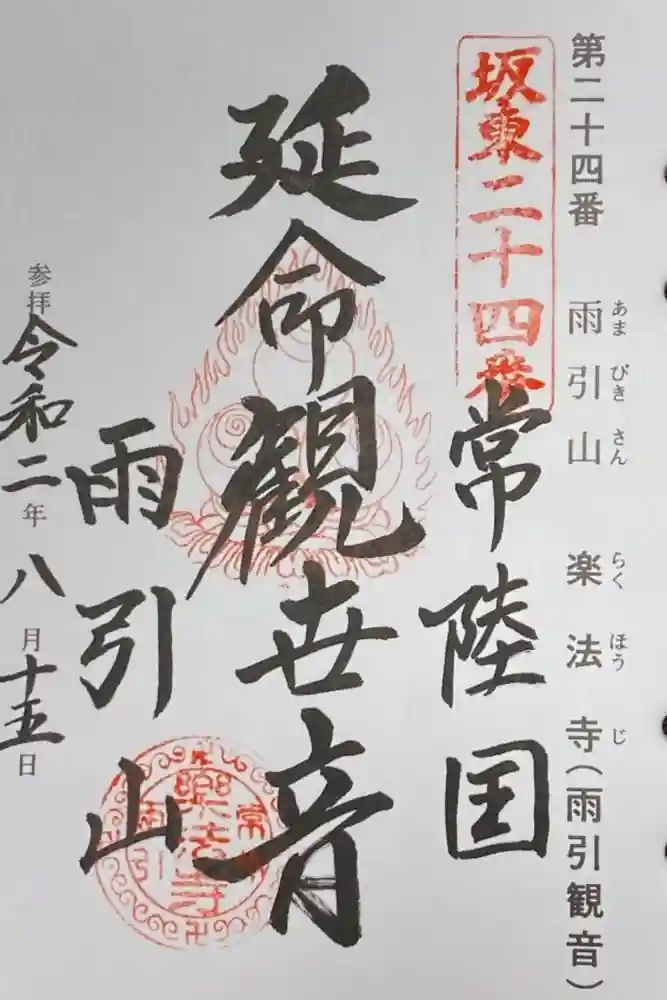 第二十四番 雨引山 楽法寺(雨引観音)
あまびきさん らくほうじ
坂東二十四番
常陸国
延命観世音
雨引山
樂法寺
常
雨引
参拝 令和二年 八月十五日